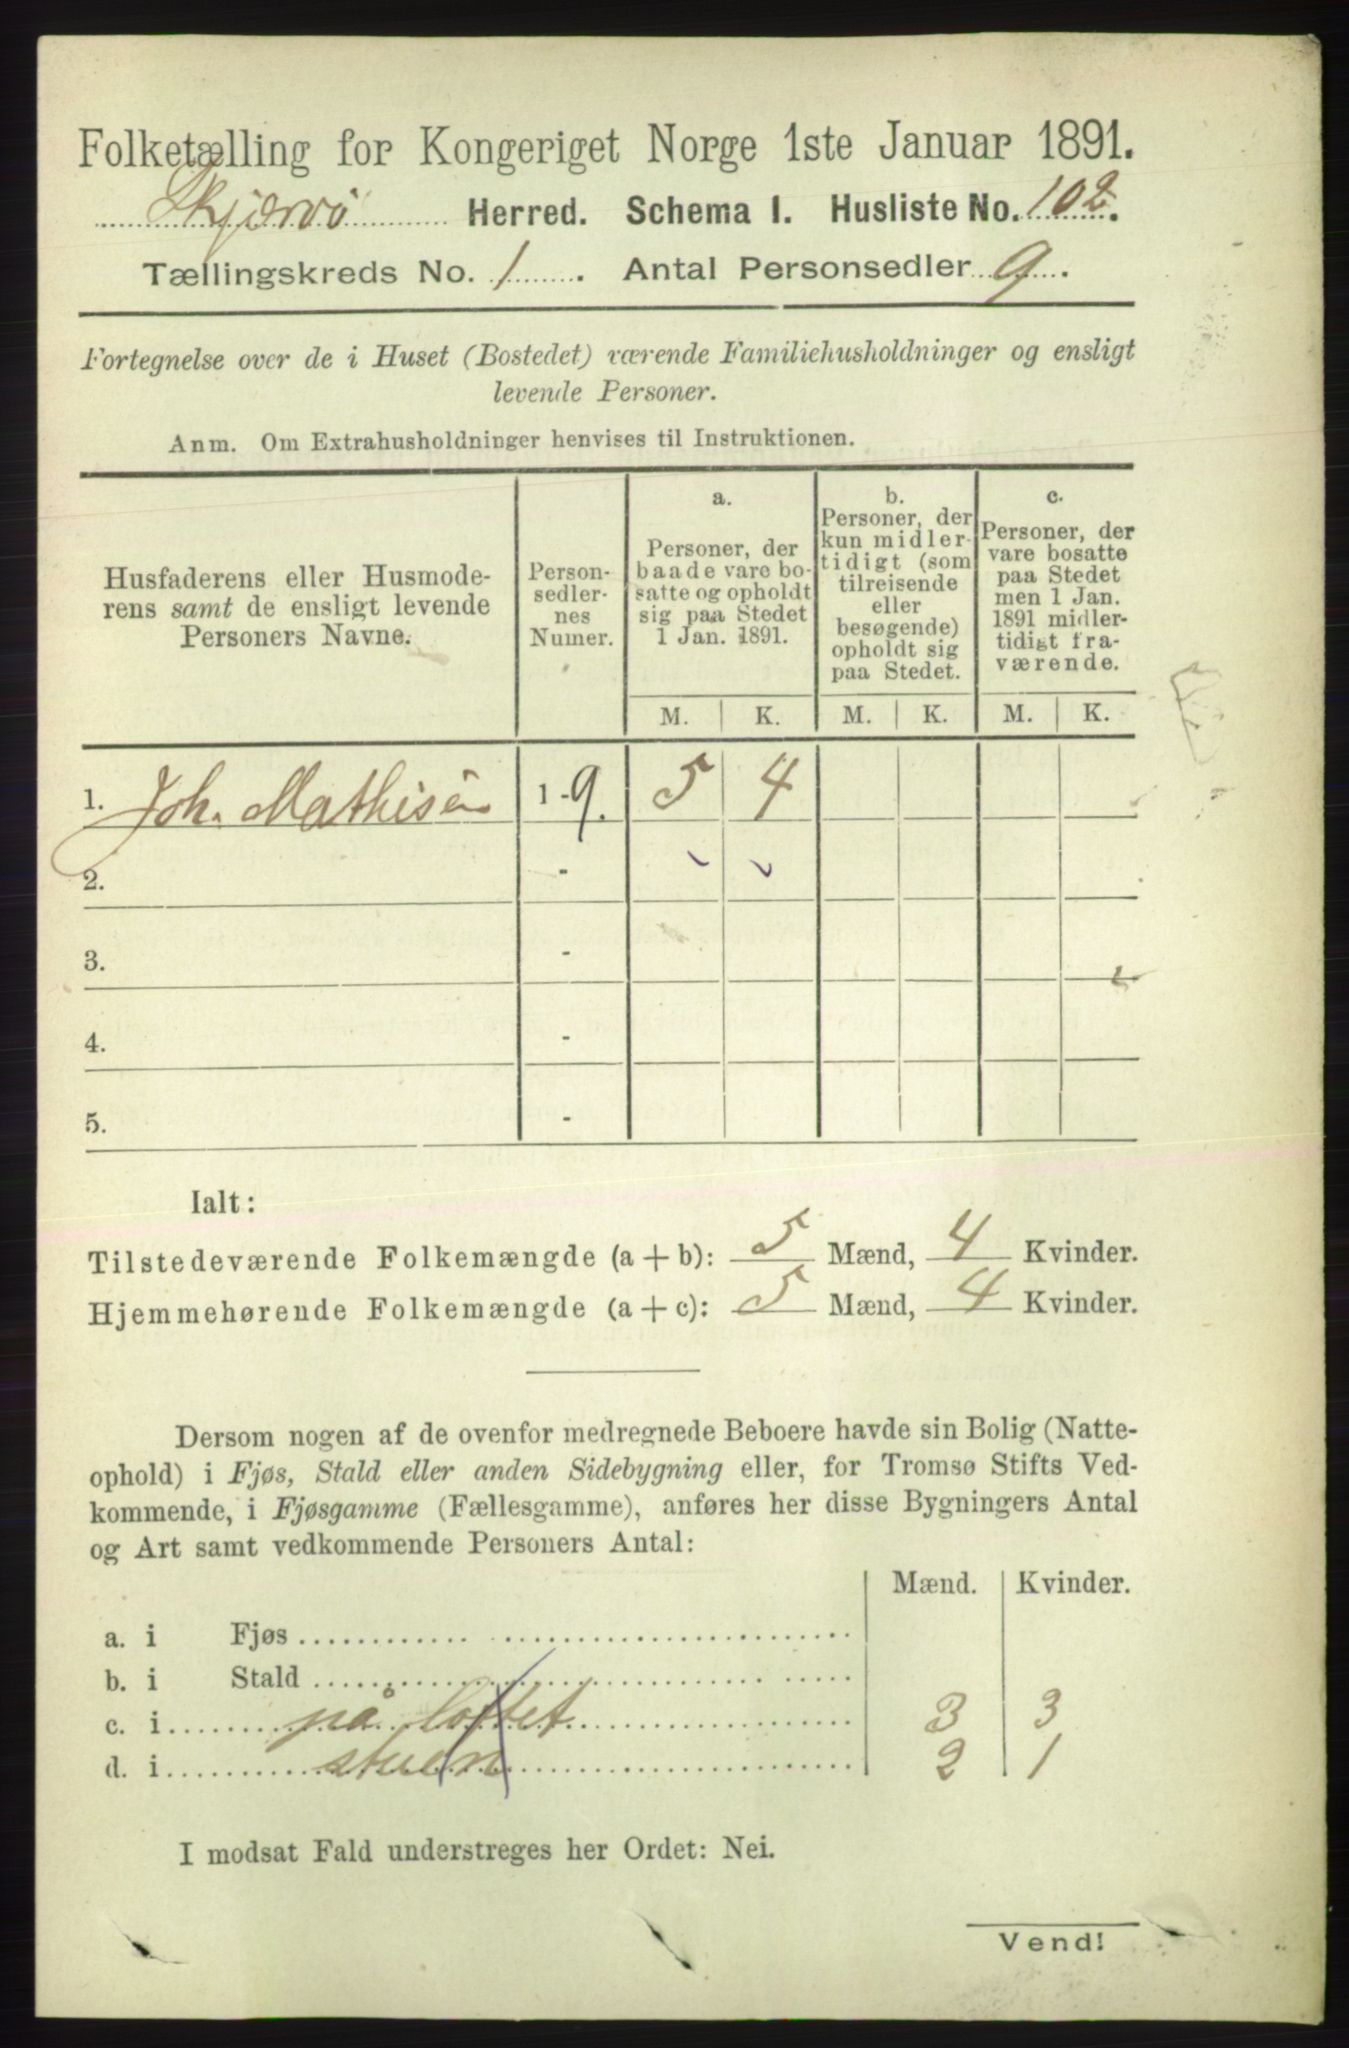 Folketælling for Kongeriget Norge 1ste Januar 1891.
Skjærvö Herred. Schema I. Husliste No. 102.
Tællingskreds No. 1. Antal Personsedler 9.
Fortegnelse over de i Huset (Bostedet) værende Familiehusholdninger og ensligt
levende Personer.
Anm. Om Extrahusholdninger henvises til Instruktionen.
Husfaderens eller Husmode-
rens samt de ensligt levende
Personers Navne.
Person-
sedler-
nes
Numer.
a.
Personer, der
baade vare bo-
satte og opholdt
sig paa Stedet
1 Jan. 1891.
b.
Personer, der
kun midler-
tidigt (som
tilreisende
eller
besøgende)
opholdt sig
paa Stedet.
c.
Personer, der
vare bosatte
paa Stedet
men 1 Jan.
1891 midler-
tidigt fra-
værende.
M. K. M. K. M. K.
1. Joh. Mathisen 1-9. 5 4
2. -
3. -
4. -
5. -
Ialt:
Tilstedeværende Folkemængde (a + b): 5 Mænd, 4 Kvinder.
Hjemmehørende Folkemængde (a + c): 5 Mænd, 4 Kvinder.
Dersom nogen af de ovenfor medregnede Beboere havde sin Bolig (Natte-
ophold) i Fjøs, Stald eller anden Sidebygning eller, for Tromsø Stifts Ved-
kommende, i Fjøsgamme (Fællesgamme), anføres her disse Bygningers Antal
og Art samt vedkommende Personers Antal:
Mænd. Kvinder.
a. i Fjøs
b. i Stald
c. i på loftet 3 3
d. i stuen 2 1
I modsat Fald understreges her Ordet: Nei.
Vend!